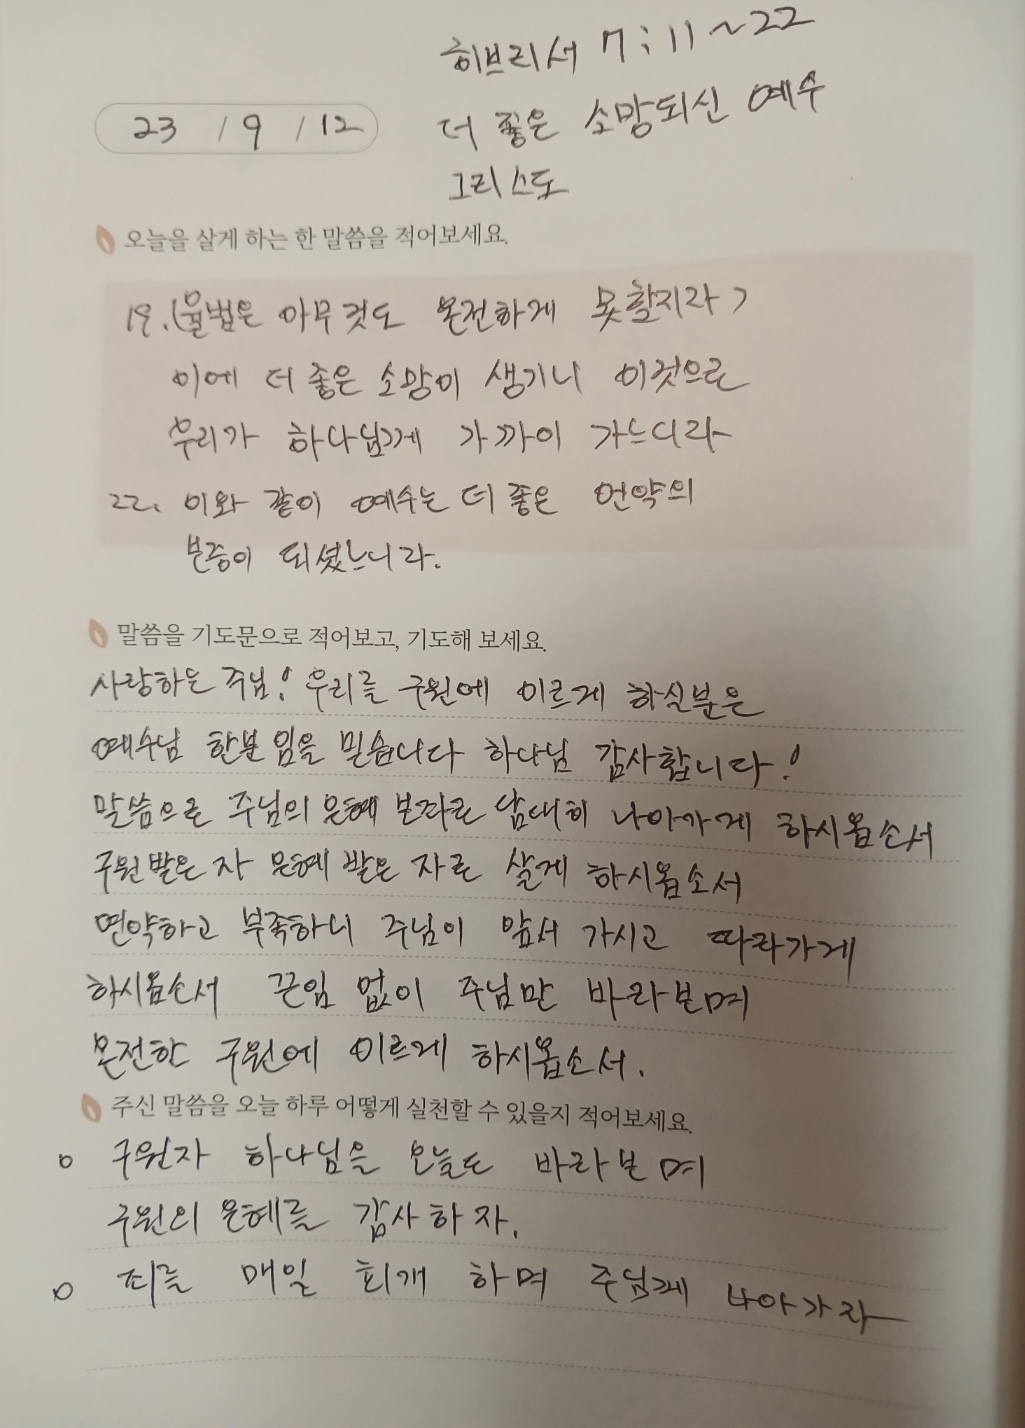 히브리서 7:11~22
23 / 9 / 12
더 좋은 소망되신 예수
그리스도
오늘을 살게 하는 한 말씀을 적어보세요.
19. (율법은 아무것도 온전하게 못할지라)
이에 더 좋은 소망이 생기니 이것으로
우리가 하나님께 가까이 가느니라
22. 이와 같이 예수는 더 좋은 언약의
보증이 되셨느니라.
말씀을 기도문으로 적어보고, 기도해 보세요.
사랑하는 주님! 우리를 구원에 이르게 하실분은
예수님 한분 임을 믿습니다 하나님 감사합니다!
말씀으로 주님의 은혜 보좌로 담대히 나아가게 하시옵소서
구원 받은 자 은혜 받은 자로 살게 하시옵소서
연약하고 부족하니 주님이 앞서 가시고 따라가게
하시옵소서 끈임 없이 주님만 바라보며
온전한 구원에 이르게 하시옵소서.
주신 말씀을 오늘 하루 어떻게 실천할 수 있을지 적어보세요.
o 구원자 하나님을 오늘도 바라보며
구원의 은혜를 감사하자.
o 죄를 매일 회개 하며 주님께 나아가자